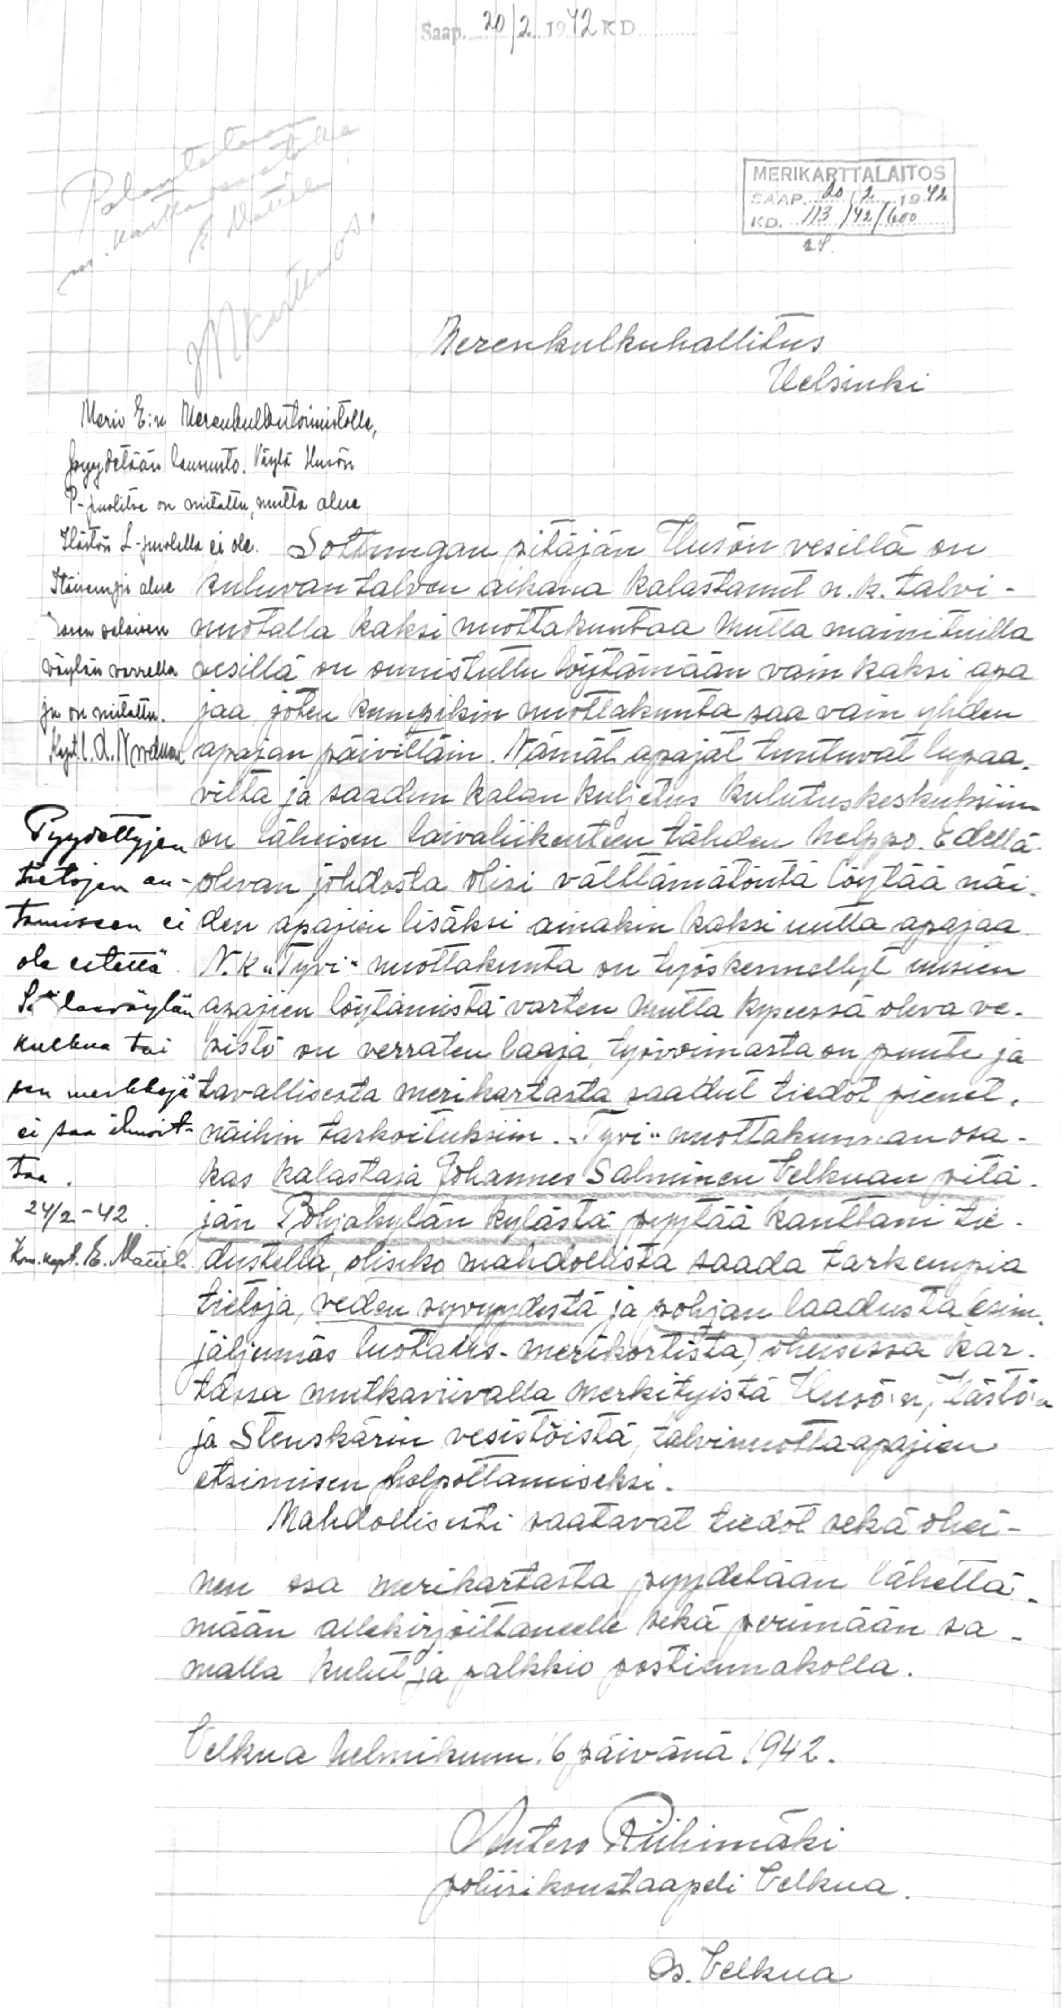 Saap. 20/2 1942 KD
Palautetaan
E Mattila
MERIKARTTALAITOS
SAAP. 20/2 1942
KD. 113/42/600
Merenkulkuhallitus
Helsinki
Meriv E:n Merenkulkutoimistolle,
pyydetään lausunto. Väylä Husön
P-puolitse on mitattu, mutta alue
Hästön L-puolella ei ole.
Itäisempi alue
väylän varrella
ja on mitattu.
Pyydettyjen
tietojen an-
tamiseen ei
ole estettä.
kulkua tai
sen merkkejä
ei saa ilmoit-
taa.
24/2-42
Kom.kapt. E. Mattila
Sottungan pitäjän Husön vesillä on
kuluvan talven aikana kalastanut n.k. talvi-
nuotalla kaksi nuottakuntaa mutta mainituilla
vesillä on onnistuttu löytämään vain kaksi apa
jaa joten kumpikin nuottakunta saa vain yhden
apajan päivittäin. Nämät apajat tuntuvat lupaa-
vilta ja saadun kalan kuljetus kulutuskeskuksiin
on läheisen laivaliikenteen tähden helppo. Edellä
olevan johdosta olisi välttämätöntä löytää näi-
den apajien lisäksi ainakin kaksi uutta apajaa
N.k "Tyvi" nuottakunta on työskennellyt uusien
apajien löytämistä varten mutta kyseessä oleva ve-
sistö on verraten laaja, työvoimasta on puute ja
tavallisesta merikartasta saadut tiedot pienet
näihin tarkoituksiin. "Tyvi" nuottakunnan osa-
kas kalastaja Johannes Salminen Velkuan pitä-
jän Pohjakylän kylästä pyytää kauttani tie-
dustella, olisiko mahdollista saada tarkempia
tietoja, veden syvyydestä ja pohjan laadusta (esim.
jäljennös luotaus-merikortista) oheisessa kar-
tassa mutkaviivalla merkityistä Husö:n, Hästö:n
ja Stenskärin vesistöistä, talvinuotta-apajien
etsimisen helpottamiseksi.
Mahdollisesti saatavat tiedot sekä ohei-
nen osa merikartasta pyydetään lähettä-
mään allekirjoittaneelle sekä perimään sa-
malla kulut ja palkkio postiennakolla.
Velkua helmikuun 16 päivänä 1942.
Antero Riihimäki
poliisikonstaapeli Velkua.
Os. Velkua